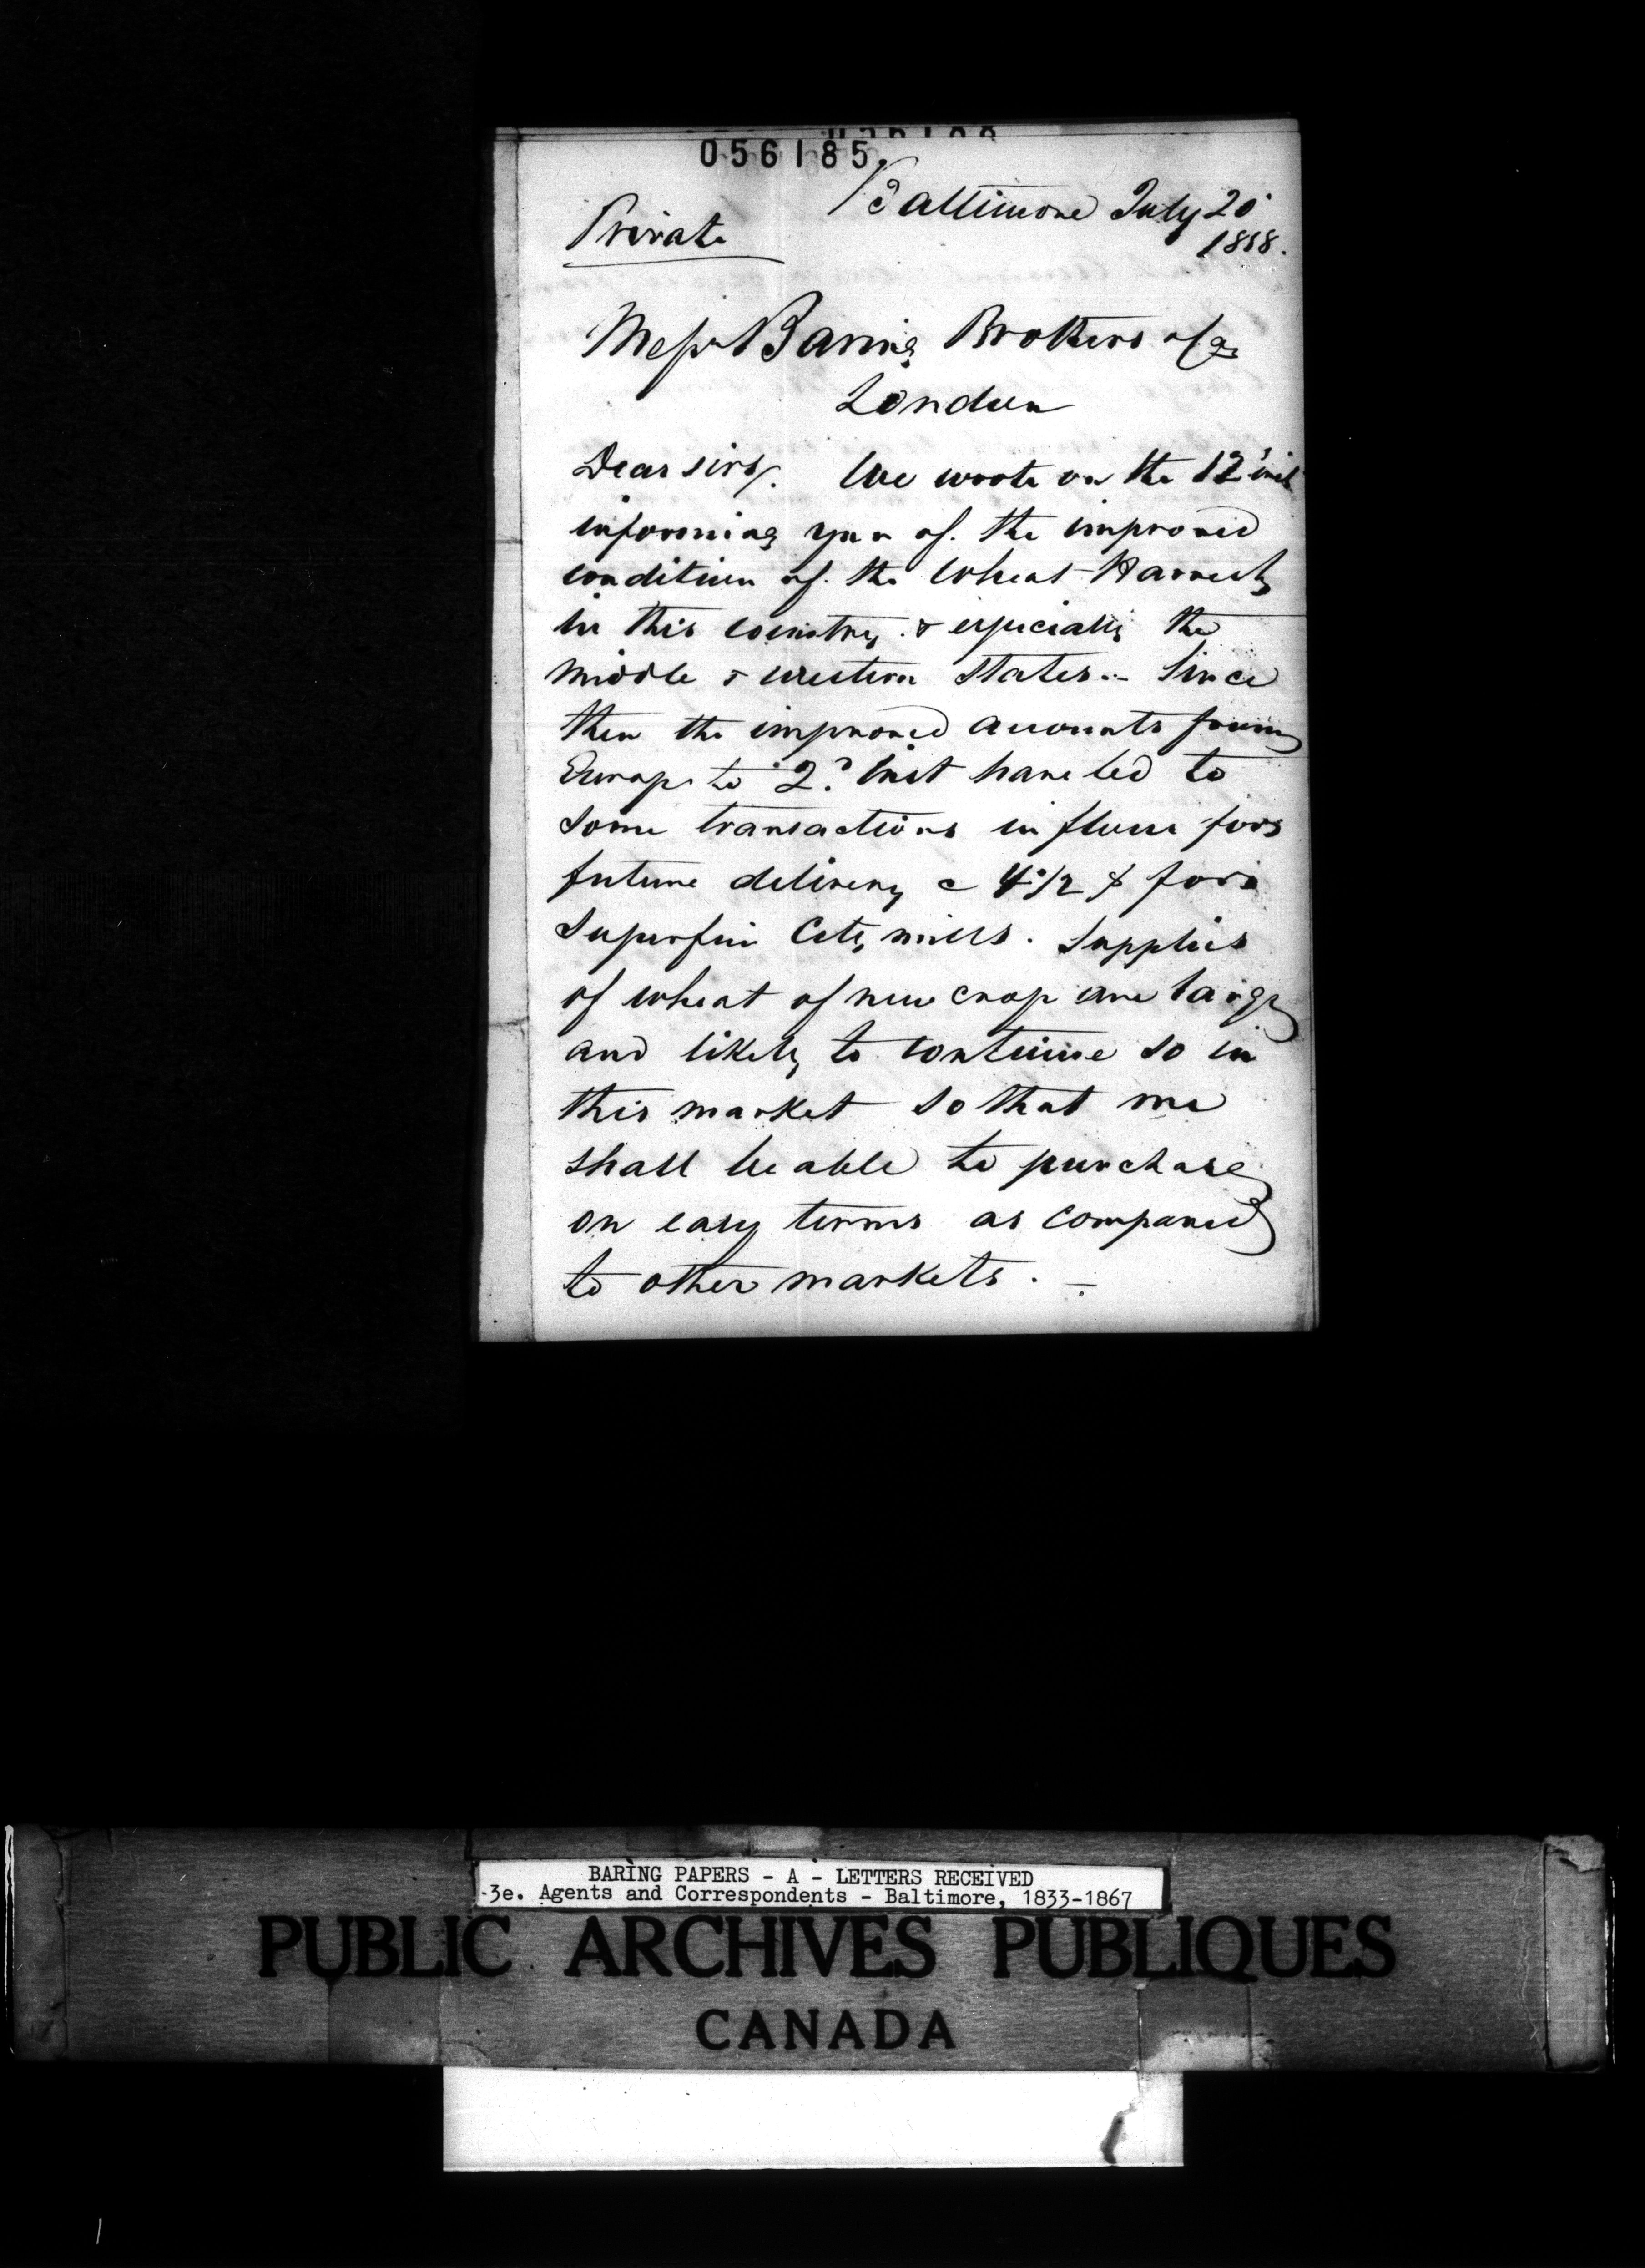 056185
Baltimore July 20
1858.
Private
Messrs Baring Brothers & Co
London
Dear Sirs/. We wrote on the 12 inst
informing you of. the improved
condition of. the Wheat Harvest
in this country. & especially the
middle & western States.- Since
then the improved accounts from
Europe to 2d inst have led to
some transactions in flour for
future delivery @ 4 1/2 $ for
Superfin City mills. Supplies
of wheat of new crop are large
and likely to continue so in
this market so that we
shall be able to purchase
on easy terms as compared
to other markets. -
BARING PAPERS - A - LETTERS RECEIVED
-3e. Agents and Correspondents - Baltimore, 1833-1867
PUBLIC ARCHIVES PUBLIQUES
CANADA